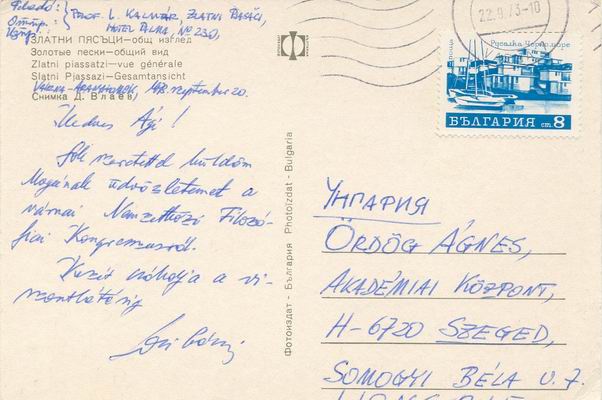 Feladó:
Отпр.:
Exp.:
PROF. L. KALMÁR, ZLATNI PASĂCI,
HOTEL PALMA, No 230,
ЗЛАТНИ ПЯСЪЦИ—общ изглед
Золотые пески—общий вид
Zlatni piassatzi—vue générale
Slatni Pjassazi—Gesamtansicht
VARNA-ARANYHOMOK, 1973. szeptember 20.
Снимка Д. Влаев
Kedves Ági!
Sok szeretettel küldöm
Magának üdvözletemet a
várnai Nemzetközi Filozó-
fiai Kongresszusról.
Kezit csókolja a vi-
szontlátásig
Laci bácsi
Фотоиздат - България Photoizdat - Bulgaria
22.9.73-10
поща
Русалка Черно море
БЪЛГАРИЯ ст 8
УНГАРИЯ
ÖRDÖG ÁGNES,
AKADÉMIAI KÖZPONT,
H-6720 SZEGED,
SOMOGYI BÉLA U. 7.